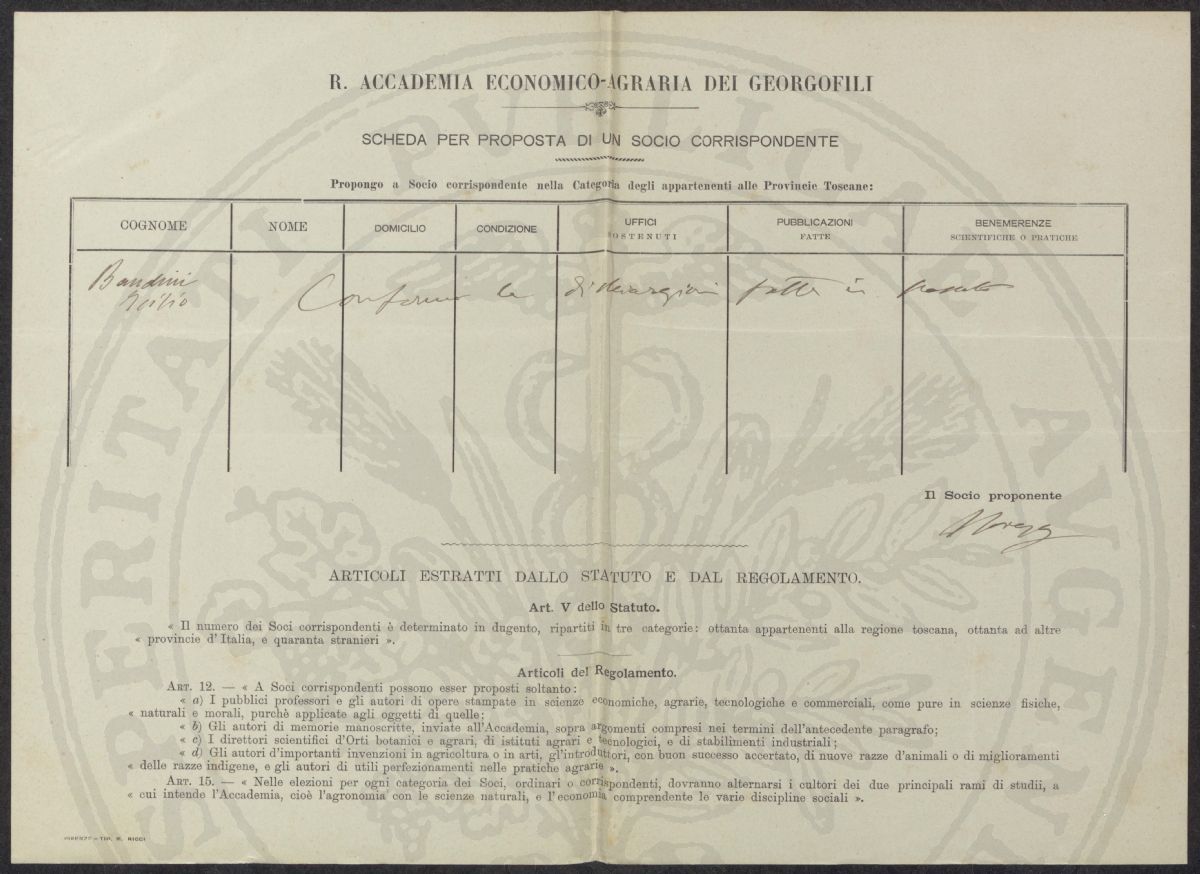 R. ACCADEMIA ECONOMICO-AGRARIA DEI GEORGOFILI
SCHEDA PER PROPOSTA DI UN SOCIO CORRISPONDENTE
Propongo a Socio corrispondente nella Categoria degli appartenenti alle Provincie Toscane:
COGNOME NOME DOMICILIO CONDIZIONE UFFICI SOSTENUTI PUBBLICAZIONI FATTE BENEMERENZE SCIENTIFICHE O PRATICHE
Bandini Conferma la dichiarazioni fatte in passato
Icilio
Il Socio proponente
ARTICOLI ESTRATTI DALLO STATUTO E DAL REGOLAMENTO.
Art. V dello Statuto.
« Il numero dei Soci corrispondenti è determinato in dugento, ripartiti in tre categorie: ottanta appartenenti alla regione toscana, ottanta ad altre
« provincie d'Italia, e quaranta stranieri ».
Articoli del Regolamento.
ART. 12. — « A Soci corrispondenti possono esser proposti soltanto:
« a) I pubblici professori e gli autori di opere stampate in scienze economiche, agrarie, tecnologiche e commerciali, come pure in scienze fisiche,
« naturali e morali, purchè applicate agli oggetti di quelle;
« b) Gli autori di memorie manoscritte, inviate all'Accademia, sopra argomenti compresi nei termini dell'antecedente paragrafo;
« c) I direttori scientifici d'Orti botanici e agrari, di istituti agrari e tecnologici, e di stabilimenti industriali;
« d) Gli autori d'importanti invenzioni in agricoltura o in arti, gl'introduttori, con buon successo accertato, di nuove razze d'animali o di miglioramenti
« delle razze indigene, e gli autori di utili perfezionamenti nelle pratiche agrarie ».
ART. 15. — « Nelle elezioni per ogni categoria dei Soci, ordinari o corrispondenti, dovranno alternarsi i cultori dei due principali rami di studii, a
« cui intende l'Accademia, cioè l'agronomia con le scienze naturali, e l'economia comprendente le varie discipline sociali ».
FIRENZE - TIP. M. RICCI
PROSPERITATI PUBLICAE AUGENDAE